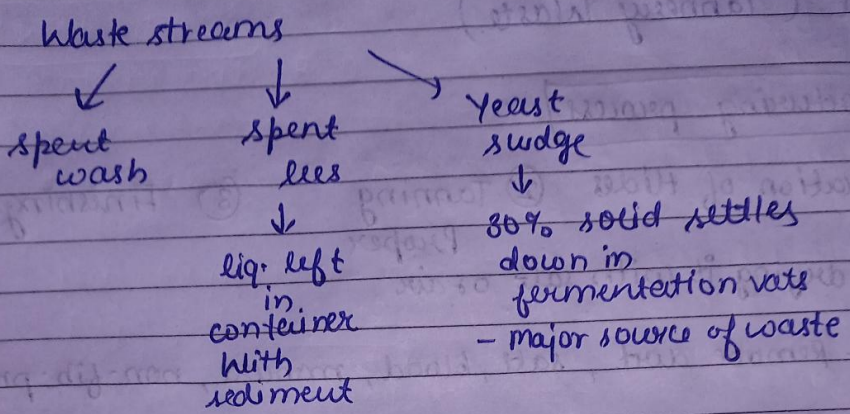 Waste streams
spent
wash
spent
lees
liq. left
in
container
with
sediment
Yeast
sudge
30% solid settles
down in
fermentation vats
- major source of waste